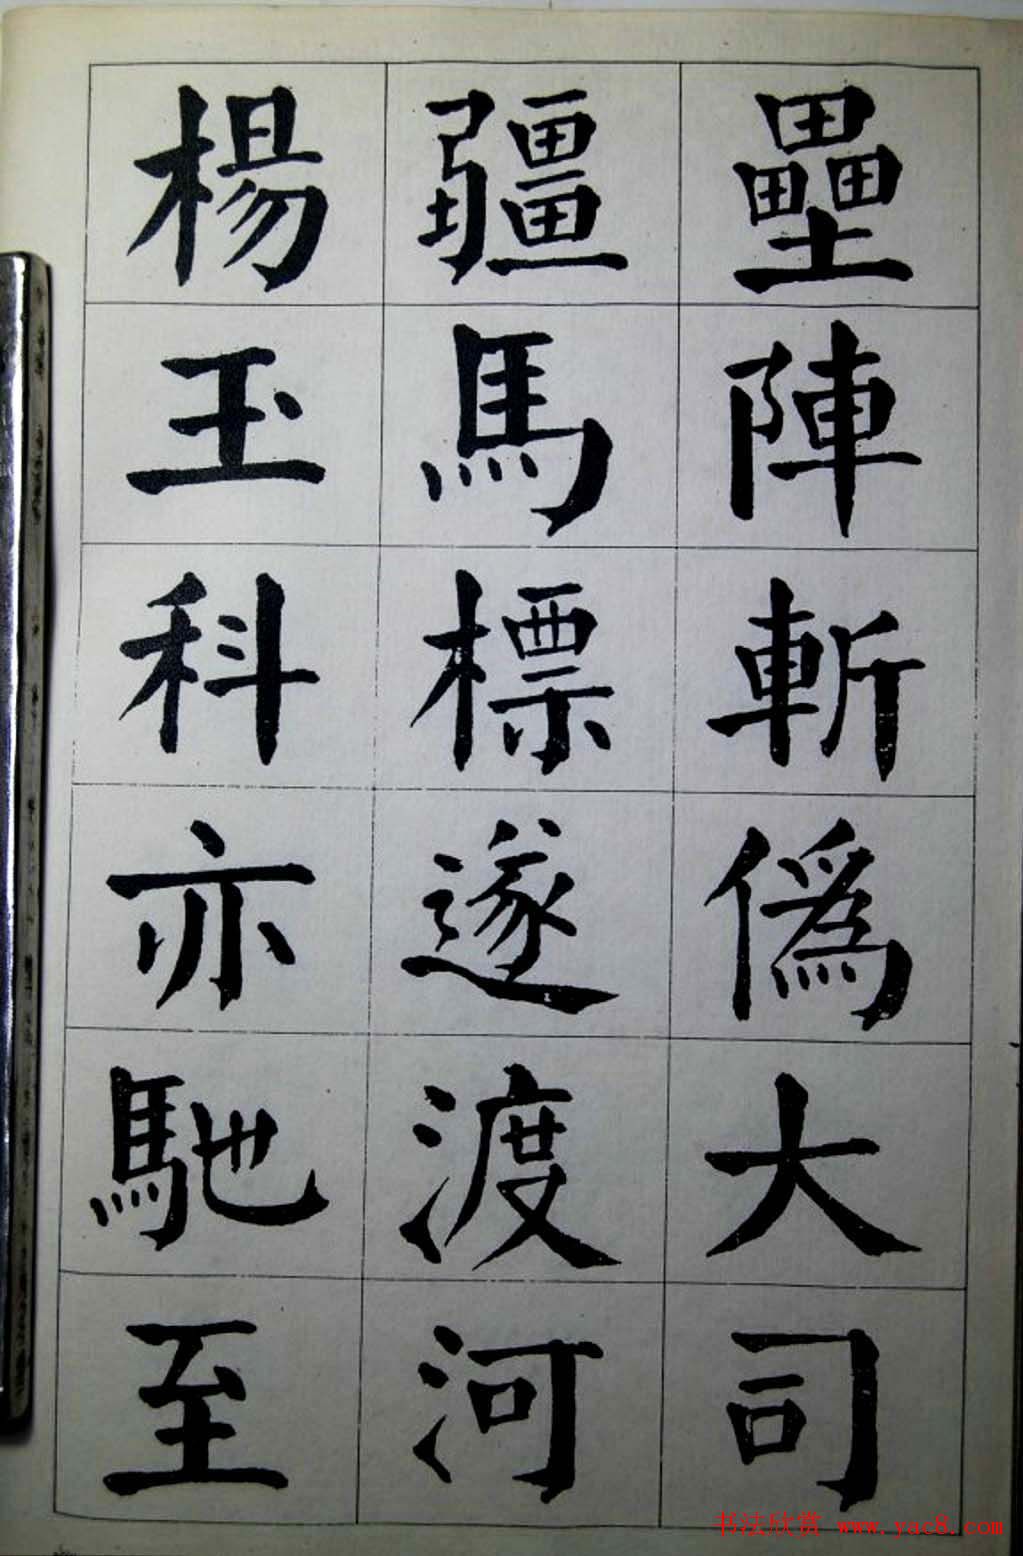 壘陣斬僞大司
疆馬標遂渡河
楊玉科亦馳至
书法欣赏 www.yac8.com